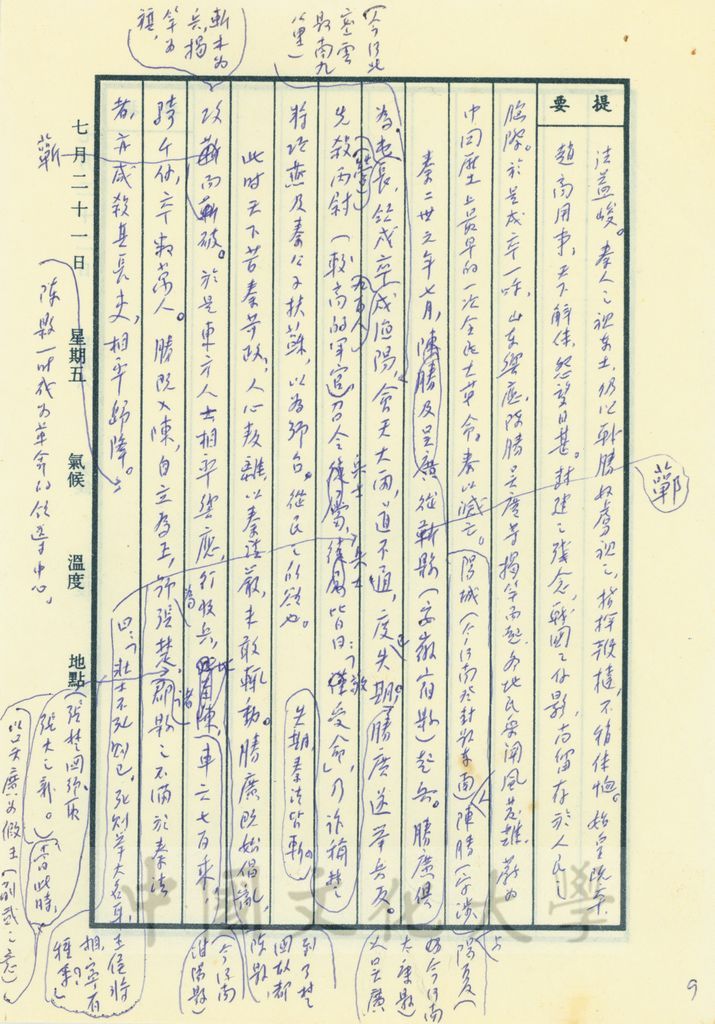 提要
法益峻。秦人之視東土，仍以戰勝奴虜視之，指揮鞭撻，不稍体恤。始皇既卒，
趙高用事，天下解体，怨望日甚。封建之殘念，戰國之餘影，尚留存於人民之
腦際。於是戍卒一呼，山東響應，陳勝吳廣等揭竿而起，各地民眾聞風
中国歷史上最早的一次全民大革命。秦以滅亡。
陽城（今河南登封縣東南）人陳勝（字涉）
陽夏（今河南太康縣）人吳廣
秦二世元年七月，陳勝及吳廣從蘄縣（安徽宿縣）起兵。勝廣俱
為屯長，戍漁陽，會天大雨，道不通，度已失期。勝廣遂舉兵反。
先殺兩尉（較高的軍官）召令徒屬，徒屬皆曰：「敬受命」，乃詐稱楚
將項燕及秦公子扶蘇，以為號召。從民之所欲也。
失期，秦法皆斬。
此時天下苦秦苛政，人心叛離，以秦法嚴，未敢輒動。勝廣既始倡亂，
攻蘄而蘄破。於是東方人士相率響應，行收兵，比至陳，車六七百乘，
騎千餘，卒數萬人。勝既入陳，自立為王，號張楚。諸郡縣之不滿於秦法
者，亦咸殺其長吏，相率歸降。
曰：「壯士不死則已，死則舉大名耳，王侯將
相，寧有種乎」
蘄
鄿
（今河北密雲縣南九里）
斬木為兵，揭竿為旗，
陳縣一時成為革命的領導中心。
到了楚国故都陳縣
（今河南淮陽縣）
張楚国號取張大之
（當此時，
（以吳廣為假王（副貳之意）
七月二十一日
星期五
氣候
溫度
地點
中國文化大學
9